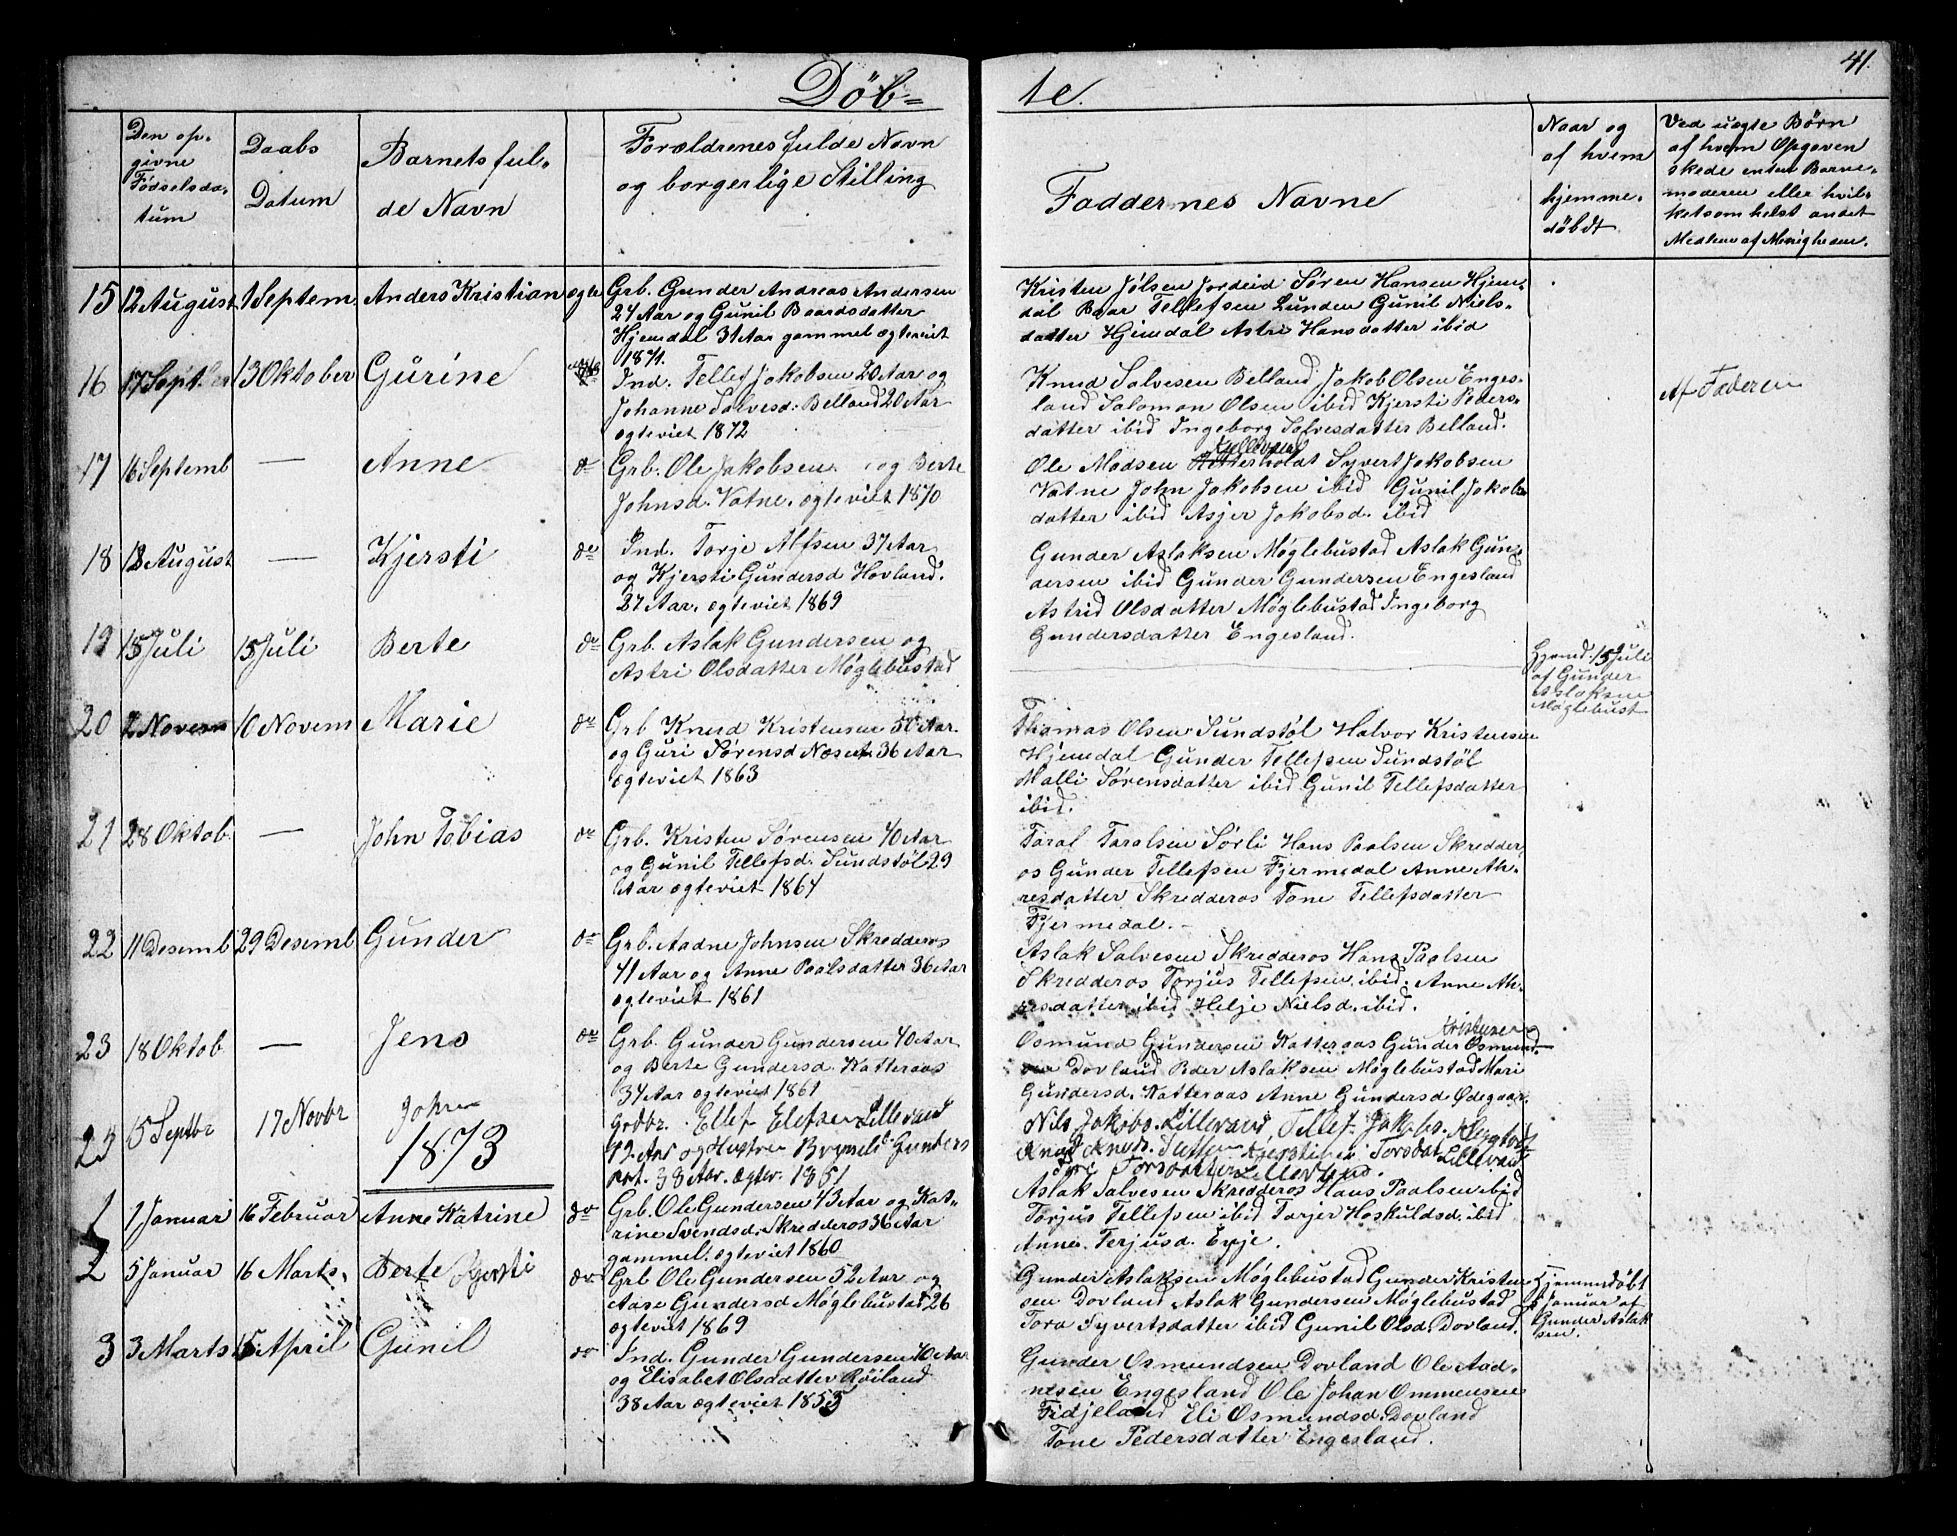 Döb=
te.
41.
Den op-
givne
Fødselsda-
tum
Daabs
Datum
Barnets ful-
de Navn
Forældrenes fulde Navn
og borgerlige Stilling
Faddernes Navne
Naar og
af hvem
hjemme-
döbdt
Ved uægte Børn
af hvem Opgaven
skede enten Barne-
moderen eller hvil-
ketsomhelst andet
Medlem af Menigheden.
15 12 August 1 Septem. Anders Kristian ægte
Grb. Gunder Andreas Andersen
24 Aar og Gunil Baardsdatter
Hjemdal 31 Aar gammel ægteviet
1871.
Kristen Jölsen Jordeid Sören Hansen Hjem-
dal Baar Tellefsen Lunden Gunil Niels-
datter Hjemdal Astri Hansdatter ibid
16 17 Septber 13 Oktober Gurine
Ind. Tellef Jakobsen 20 Aar og
Johanne Salvesd: Belland 20 Aar
ægteviet 1872
Knud Salvesen Belland Jakob Olsen Enges-
land Salomon Olsen ibid Kjersti Peders-
datter ibid Ingeborg Salvesdatter Belland.
Af Faderen
17 16 Septemb — Anne do
Grb. Ole Jakobsen og Berte
Johnsd. Vatne. ægteviet 1870
Ole Madsen Lillevand Syvert Jakobsen
Vatne John Jakobsen ibid Gunil Jakobs-
datter ibid Asjer Jakobsd. ibid
18 12 August — Kjersti do
Ind. Torje Alfsen 37 Aar
og Kjersti Gundersd Hovland.
27 Aar. ægteviet 1869
Gunder Aslaksen Møglebustad Aslak Gun-
dersen ibid Gunder Gundersen Engesland
Astrid Olsdatter Møglebustad Ingeborg
Gundersdatter Engesland.
19 15 Juli 15 Juli Berte do
Grb. Aslak Gundersen og
Astri Olsdatter Møglebustad
Hjemd. 15 Juli
af Gunder
Aslaksen
Møglebust
20 2 Novem 10 Novem Marie do
Grb Knud Kristensen 50 Aar.
og Guri Sørensd Næset 36 Aar
ægteviet 1863
Thomas Olsen Sundstøl Halvor Kristensen
Hjemdal Gunder Tellefsen Sundstøl
Malli Sørensdatter ibid Gunil Tellefsdatter
ibid.
21 28 Oktob. — John Tobias do
Grb. Kristen Sørensen 40 Aar
og Gunil Tellefsd. Sundstøl 29
Aar ægteviet 1864
Taral Taralsen Sørli Hans Paalsen Skredder-
os Gunder Tellefsen Fjermedal Anne Ah-
resdatter Skredderos Tone Tellefsdatter
Fjermedal.
22 11 Desemb 29 Desemb Gunder do
Grb. Aadne Johnsen Skredderos
41 Aar og Anne Paalsdatter 36 Aar
ægteviet 1861
Aslak Salvesen Skredderos Hans Paalsen
Skredderos Torjus Tellefsen ibid. Anne Ah-
resdatter ibid Helje Nielsd. ibid.
23 18 Oktob — Jens do
Grb. Gunder Gundersen 40 Aar
og Berte Gundersd. Katteraas
34 Aar ægteviet 1861
Kristen
Osmund Gundersen Katteraas Gunder Osmund-
sen Dovland Peder Aslaksen Møglebustad Mari
Gundersd. Katteraas Anne Gundersd Ødegaar
25 15 Septbr 17 Novbr John
Grdbr. Ellef Elefsen Lillevand
42 Aar og Hustru Brynild Gunders
Dat. 38 Aar. Ægtev. 1851
Nils Jakobs. Lillevand Tellef Jakobs.
Knud Knuds. Kjersti Torsdat Lillevand
Torsdatter Lillevand.
1873
1 1 Januar 16 Februar Anne Katrine do
Grb. Ole Gundersen 43 Aar og Kat-
rine Svendsd. Skredderos 36 Aar
gammel. ægteviet 1860
Aslak Salvesen Skredderos Hans Paalsen ibid
Torjus Tellefsen ibid Torjer Hoskuldsd. ibid
Anne Terjusd. Evje.
2 5 Januar 16 Marts. Berte Kjersti do
Grb Ole Gundersen 52 Aar og
Aase Gundersd Møglebustad 26
ægteviet 1869
Gunder Aslaksen Møglebustad Gunder Kristen
sen Dovland Aslak Gundersen Møglebustad
Tora Syvertsdatter ibid Gunil Olsd. Dovland.
Hjemmedøbt
5 Januar af
Gunder Aslak
sen.
3 3 Marts 15 April Gunil do
Ind. Gunder Gundersen 40 Aar
og Elisabet Olsdatter Røiland
38 Aar ægteviet 1853
Gunder Osmundsen Dovland Ole Aad-
nesen Engesland Ole Johan Ommensen
Fidjeland Eli Osmundsd. Dovland
Tone Pedersdatter Engesland.